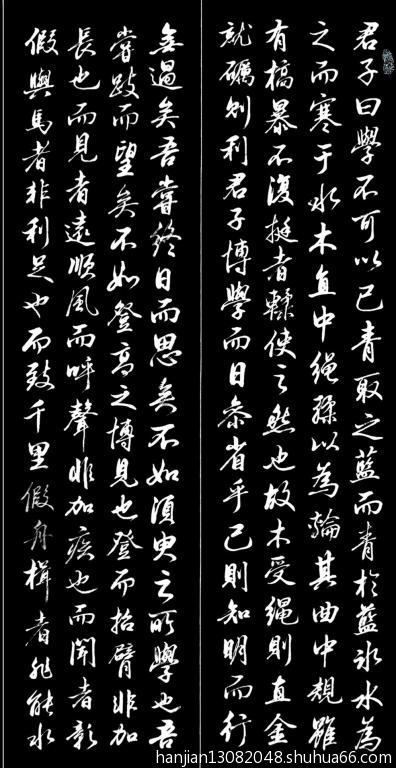 君子曰學不可以已青取之藍而青於藍冰水為
之而寒于水木直中绳鞣以為輪其曲中規雖
有槁暴不復挺者鞣使之然也故木受绳則直金
就礪則利君子博學而日叅省乎己則知明而行
無過矣吾嘗終日而思矣不如須臾之所學也吾
嘗跂而望矣不如登高之博見也登而招臂非加
長也而見者遠順風而呼聲非加疾也而聞者彰
假輿馬者非利足也而致千里假舟楫者非能水
hanjian13082048.shuhua66.com